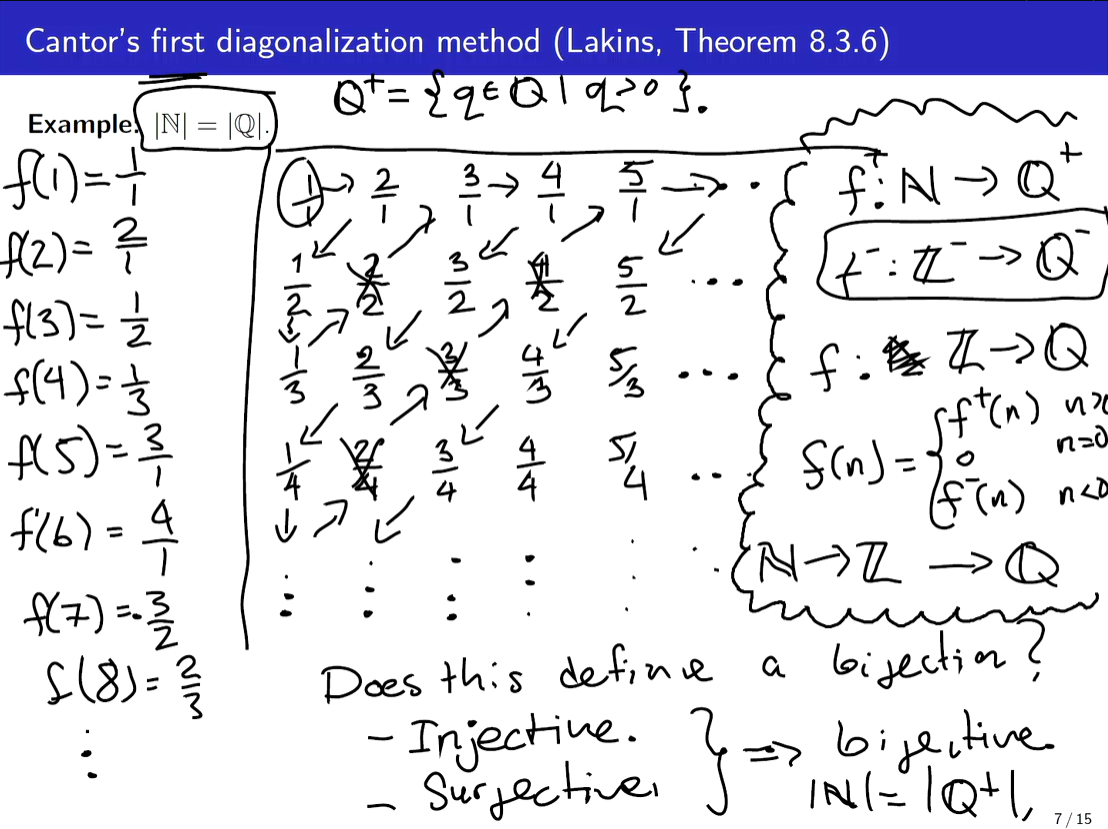 Cantor's first diagonalization method (Lakins, Theorem 8.3.6)
ℚ⁺ = {q ∈ ℚ | q > 0}.
Example: |ℕ| = |ℚ|.
f(1) = 1/1
f(2) = 2/1
f(3) = 1/2
f(4) = 1/3
f(5) = 3/1
f(6) = 4/1
f(7) = 3/2
f(8) = 2/3
⋮
1/1 → 2/1 3/1 → 4/1 5/1 → ⋯
1/2 2/2 3/2 4/2 5/2 ⋯
1/3 2/3 3/3 4/3 5/3 ⋯
1/4 2/4 3/4 4/4 5/4 ⋯
f⁺: ℕ → ℚ⁺
f⁻: ℤ⁻ → ℚ⁻
f: ℤ → ℚ
f(n) = { f⁺(n) n>0
0 n=0
f⁻(n) n<0
ℕ → ℤ → ℚ
Does this define a bijection?
- Injective.
- Surjective.
} ⇒ bijective.
|ℕ| = |ℚ⁺|.
7 / 15